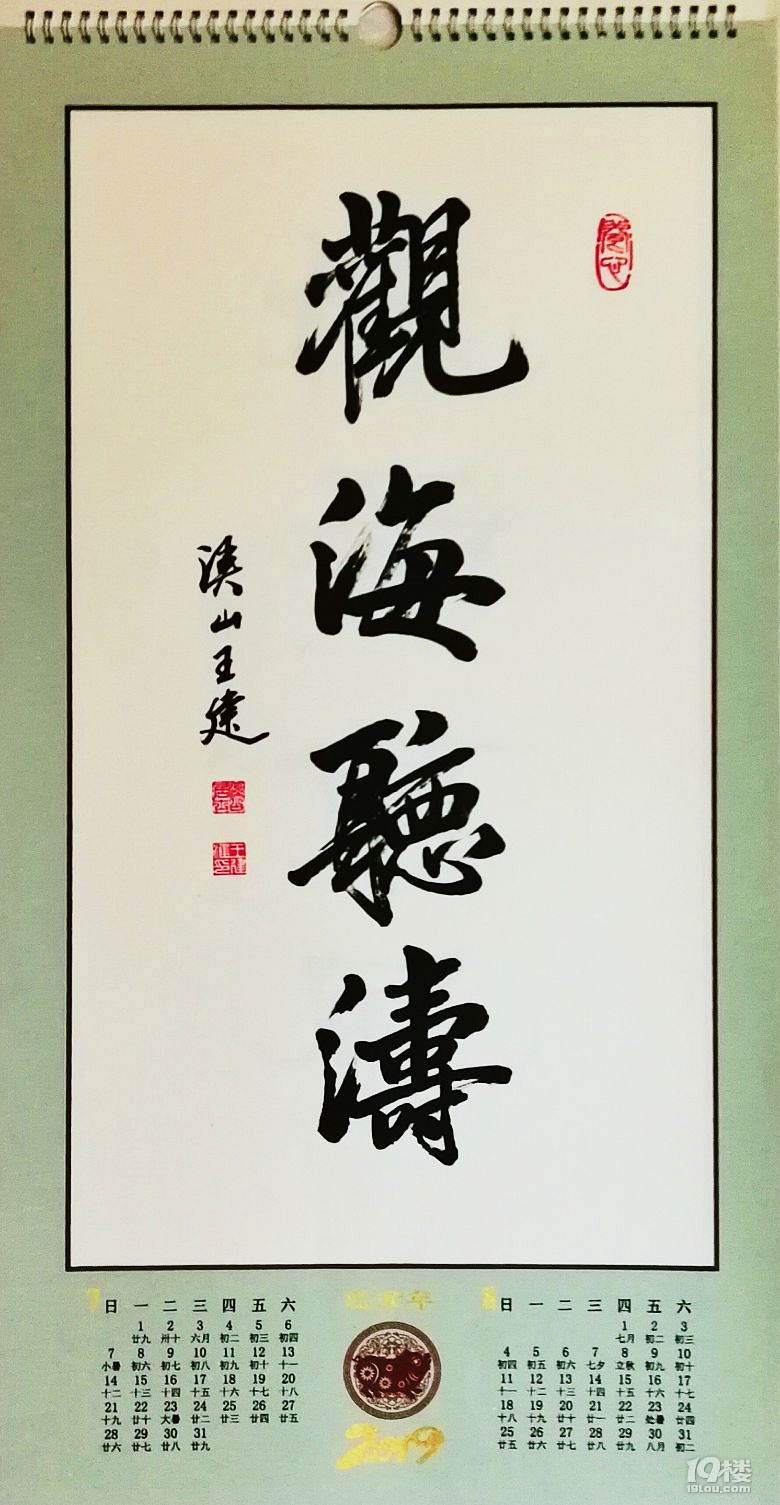 觀海聽濤
溪山王建
己亥年
2019
7
日 一 二 三 四 五 六
1 2 3 4 5 6
廿九 卅十 六月 初二 初三 初四
7 8 9 10 11 12 13
小暑 初六 初七 初八 初九 初十 十一
14 15 16 17 18 19 20
十二 十三 十四 十五 十六 十七 十八
21 22 23 24 25 26 27
十九 廿十 大暑 廿二 廿三 廿四 廿五
28 29 30 31
廿六 廿七 廿八 廿九
8
日 一 二 三 四 五 六
1 2 3
七月 初二 初三
4 5 6 7 8 9 10
初四 初五 初六 七夕 立秋 初九 初十
11 12 13 14 15 16 17
十一 十二 十三 十四 十五 十六 十七
18 19 20 21 22 23 24
十八 十九 廿十 廿一 廿二 处暑 廿四
25 26 27 28 29 30 31
廿五 廿六 廿七 廿八 廿九 八月 初二
19楼
19lou.com